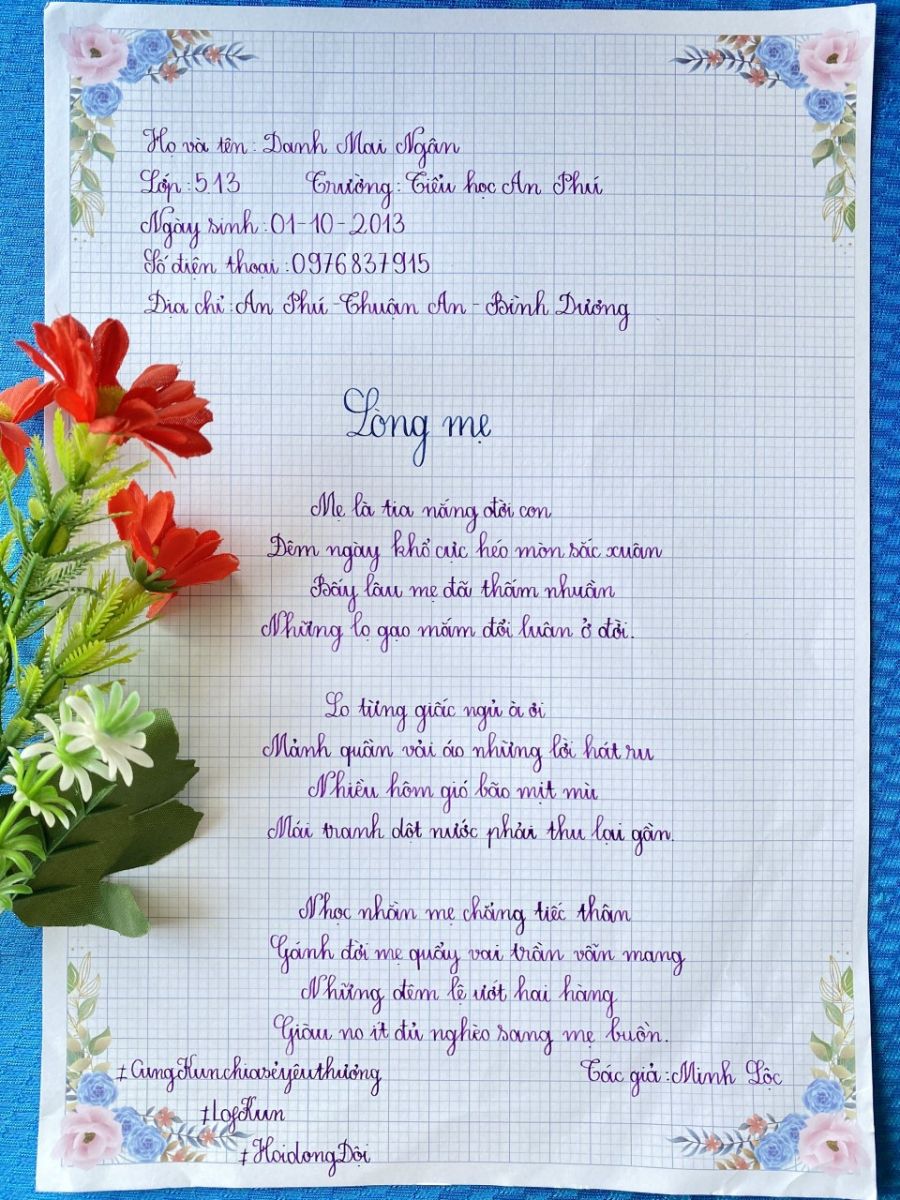 Họ và tên: Danh Mai Ngân
Lớp: 513 Trường: Tiểu học An Phú
Ngày sinh: 01-10-2013
Số điện thoại: 0976837915
Địa chỉ: An Phú - Thuận An - Bình Dương
Lòng mẹ
Mẹ là tia nắng đời con
Đêm ngày khổ cực héo mòn sắc xuân
Bấy lâu mẹ đã thấm nhuần
Những lọ gạo mắm đổi luân ở đời.
Lo từng giấc ngủ à ơi
Mảnh quần vải áo những lời hát ru
Nhiều hôm gió bão mịt mù
Mái tranh dột nước phải thu lại gần.
Nhọc nhằn mẹ chẳng tiếc thân
Gánh đời mẹ quẩy vai trần vẫn mang
Những đêm lệ ướt hai hàng
Giàu no ít đủ nghèo sang mẹ buồn.
#CùngKunchiasẻyêuthương Tác giả: Minh Lộc
#LofKun
#HoidongDội